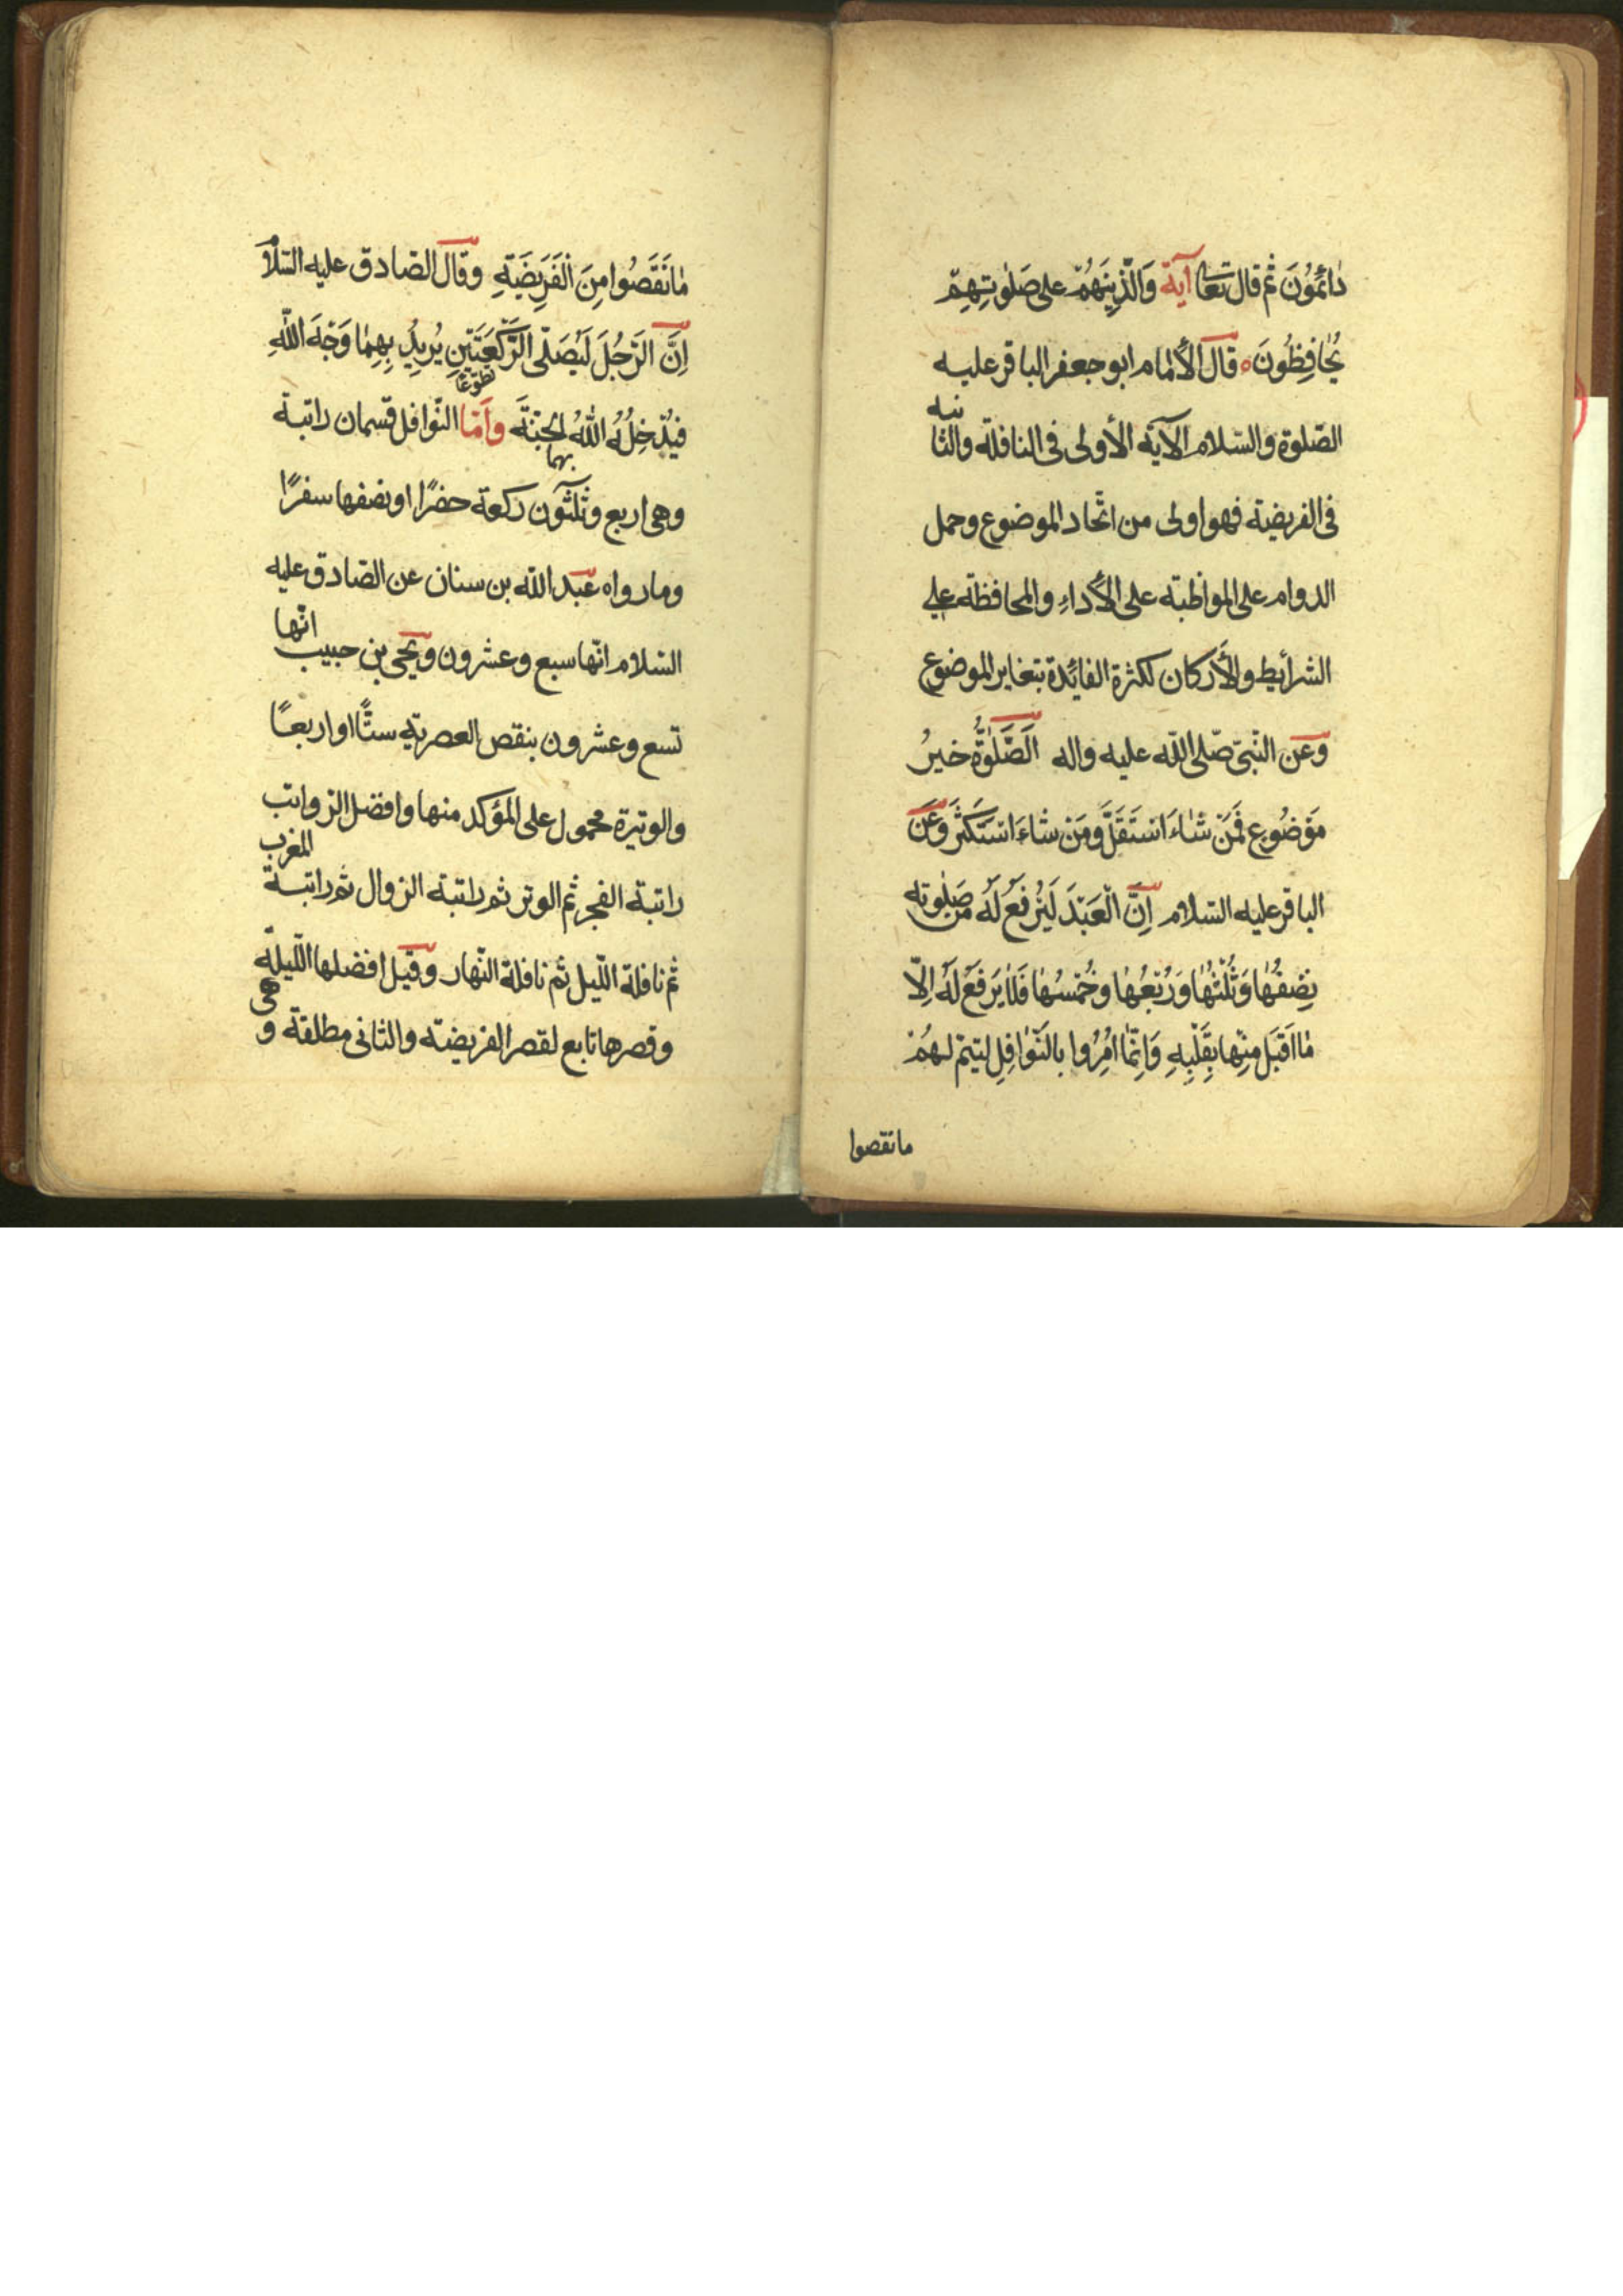 دٰائِمُونَ ثم قال تعا آية وَالَّذِينَهُمْ على صَلٰوتِهِمْ
يُحٰافِظُونَ ه قال الأمام ابو جعفر الباقر عليه
الصّلوة والسّلام الآية الأولى فى النافلة والثانيه
فى الفريضية فهو اولى من اتّحاد الموضوع وحمل
الدوام على المواظبة على الأداءِ والمحافظة على
الشرأيط والأركان لكثرة الفائدة بتغاير الموضوع
وعن النّبىّ صّلى اللّه عليه واله اَلصَّلٰوةُ خيرُ
مَوْضُوعٍ فَمَنْ شٰاءَ اسْتَقَلَّ وَمَنْ شاءَ اسْتَكْثَرَ وعَن
الباقر عليه السّلام اِنَّ الْعَبْدَ لَيُرْفَعُ لَهُ مِن صَلٰوته
نِصْفُهٰا وَثُلْثُهٰا وَرُبْعُهٰا وَخُمْسُهٰا فَلٰا يَرْفَعُ لَهُ اِلّا
مٰا اَقْبَلَ مِنْها بِقَلْبِهِ وَاِنَّمٰا اُمِرُوا بِالنَّوٰافِلِ ليتمّ لهُمْ
ما نقصوا
مٰا نَقَصُوا مِنَ الْفَرِيضَةِ وقال الصّادق عليه السّلام
اِنَّ الرَّجُلَ لَيُصَلّى الرَّكْعَتَيْنِ تطوّعًا يُرِيدُ بِهِمٰا وَجْهَ اللّٰهِ
فيُدْخِلُهُ اللّٰهُ بهما الجَنَّةَ وَاَمّا النّوافل قسمان راتبة
وهى اربع وثلثون ركعة حضرًا او نصفها سفرًا
وما رواه عبد اللّه بن سنان عن الصّادق عليه
السّلام انّها سبع وعشرون ويحيى بن حبيب انّها
تسع وعشرون بنقص العصرية ستًّا او اربعًا
والوتيرة محمول على المؤكد منها وافضل الرواتب
راتبة الفجر ثم الوتر ثم راتبة الزوال ثم راتبة المغرب
ثم نافلة اللّيل ثم نافلة النّهار وقيل افضلها اللّيلة
وقصرها تابع لقصر الفريضة والثانى مطلقة و هى